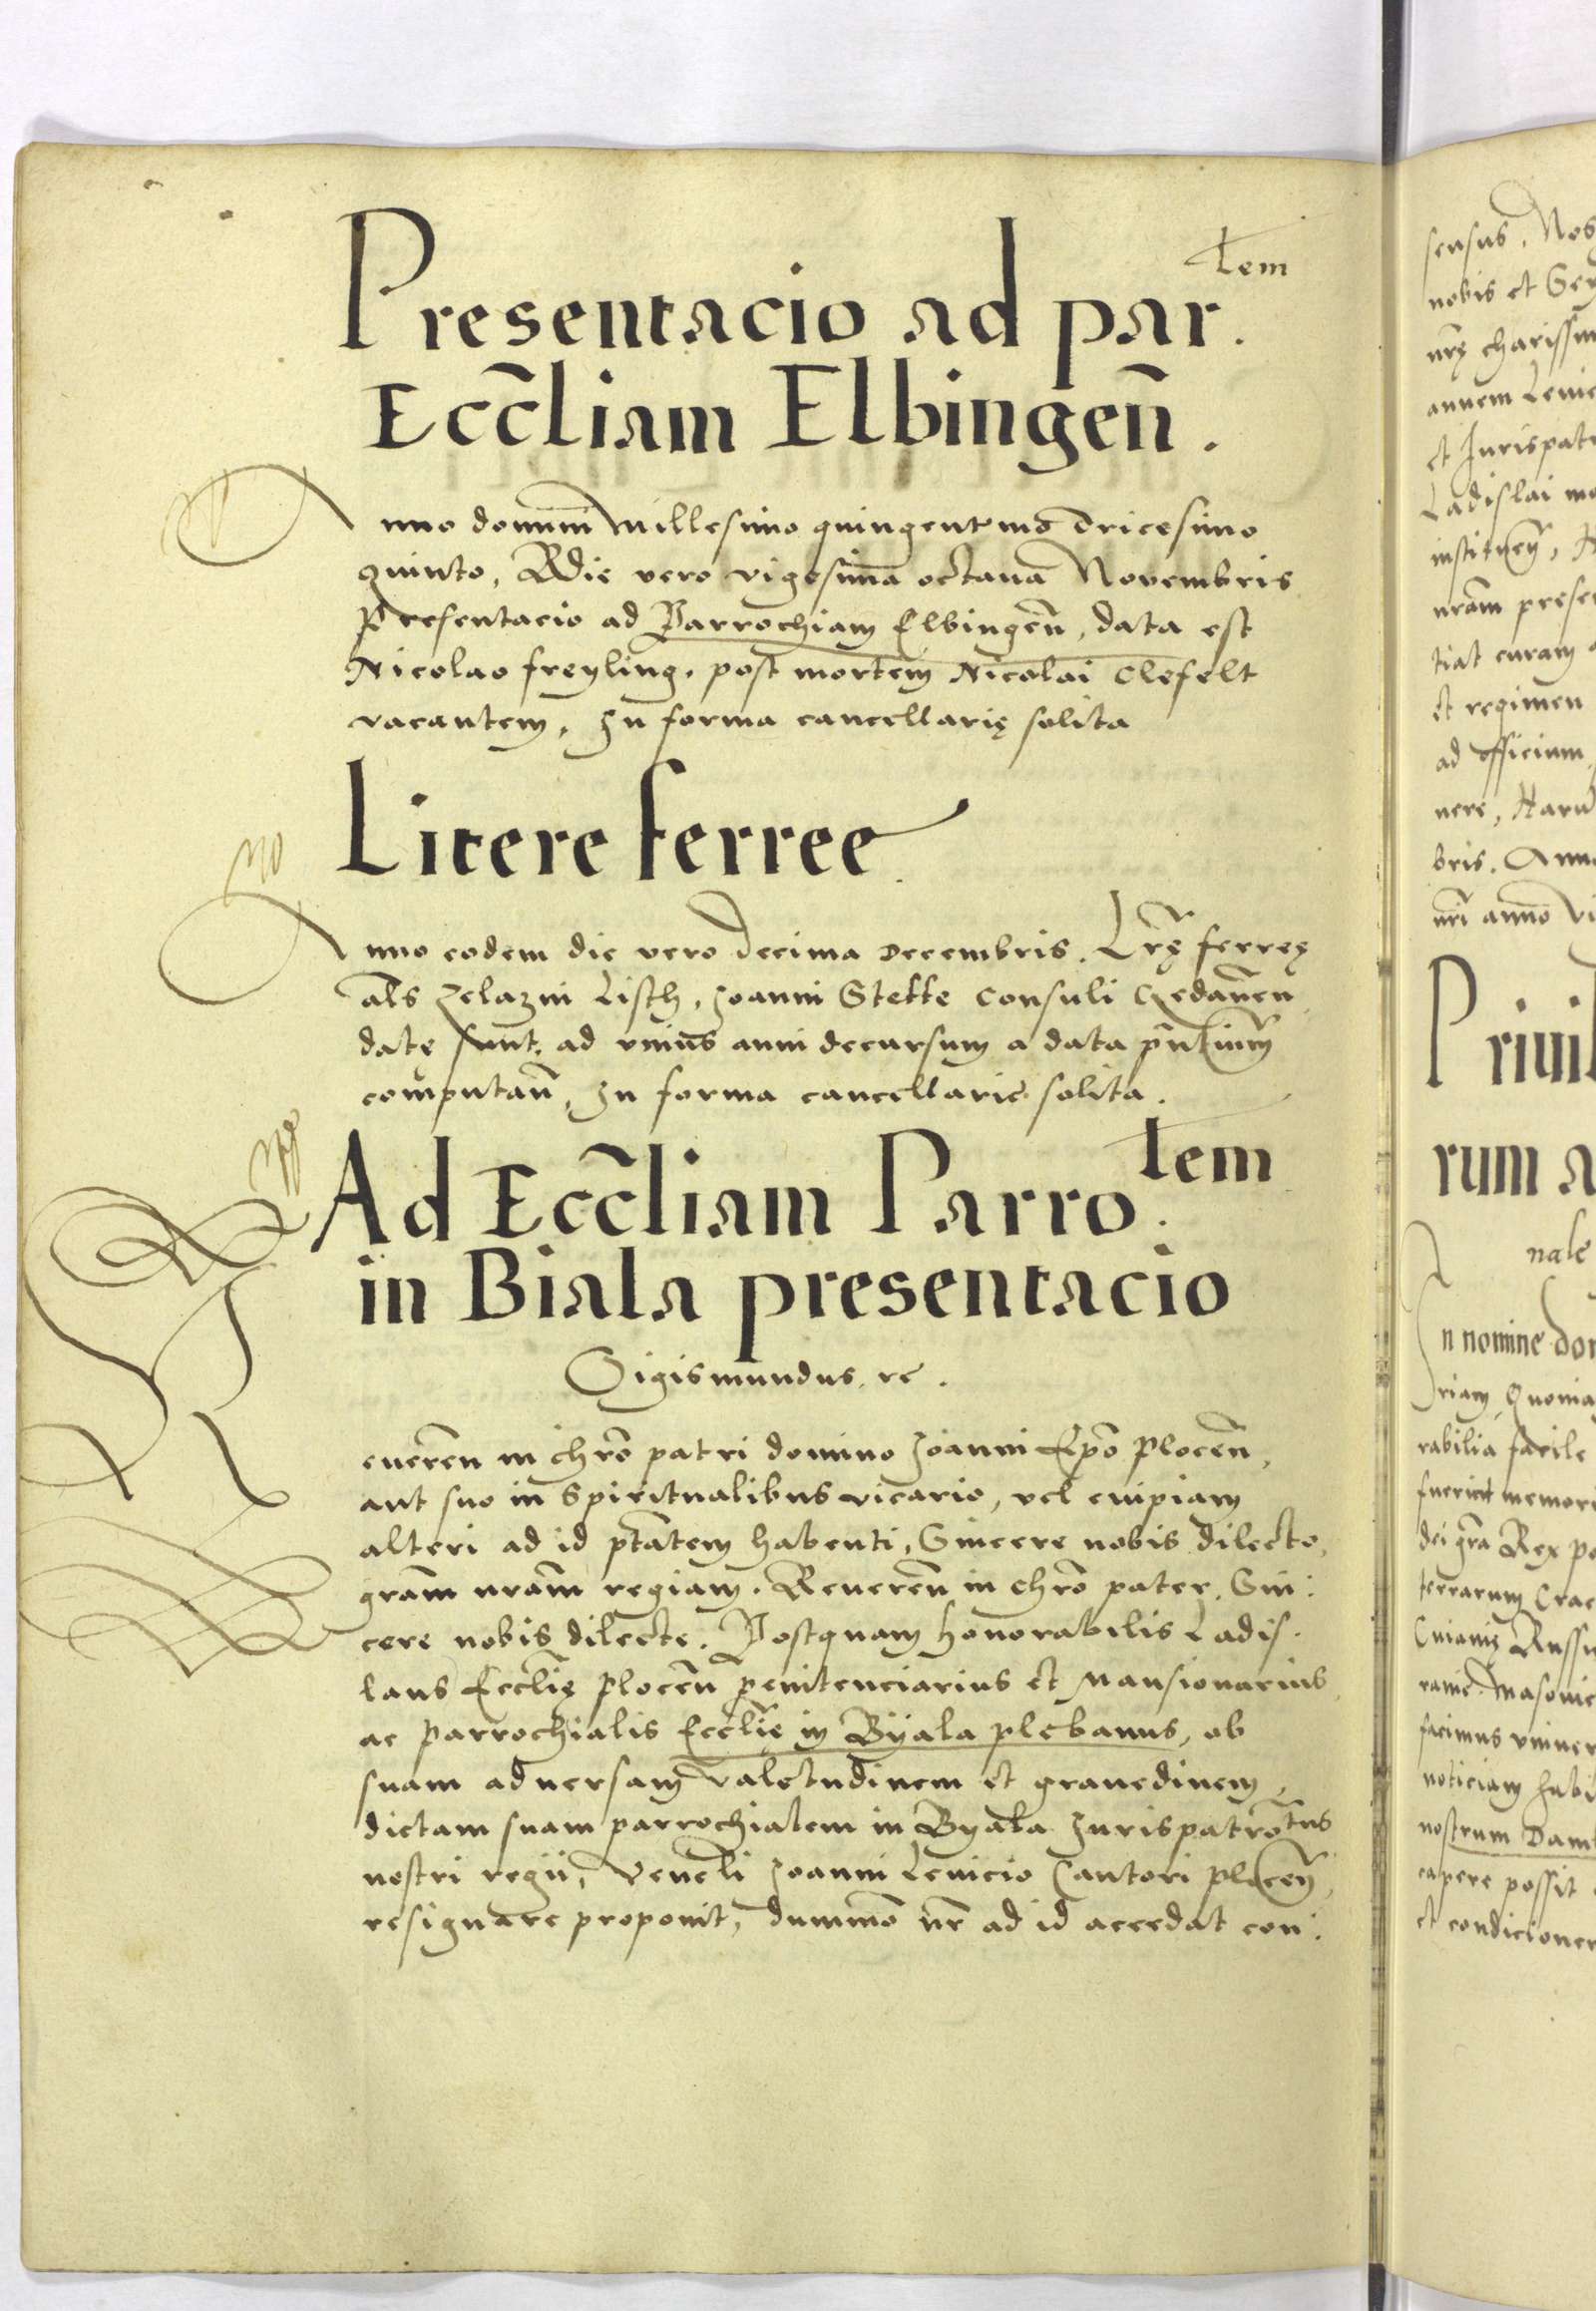 Presentacio ad par.tem
Ecc̃liam Elbingen̄.
Anno domini Millesimo quingentesimo Tricesimo
quinto, Die vero vigesima octaua Nouembris
Presentacio ad Parrochiam Elbingen̄, data est
Nicolao freyling. post mortem Nicolai Clefelt
vacantem, In forma cancellarię solita
Litere ferree
Anno eodem die vero Decima Decembris. Lr̄ę ferreę
als Zelazni Listh, Joanni Stette Consuli Gedanen̄
datę sunt, ad vnius anni decursum a data pn̄tium
computan̄, In forma cancellarie solita.
Ad Ecc̃liam Parro.tem
in Biala presentacio
Sigismundus, rc.
Reueren̄ in chr̄o patri domino Joanni Ep̄o Plocen̄,
aut suo in Spiritualibus vicario, vel cuipiam
alteri ad id ptātem habenti, Sincere nobis dilecto,
gram̄ nram̄ regiam. Reueren̄ in chr̄o pater, Sin:
cere nobis dilecte. Postquam honorabilis Ladis.
laus Eccl̄ię Plocen̄ penitenciarius et Mansionarius,
ac parrochialis Eccl̄ię in Biiala plebanus, ob
suam aduersam valetudinem et grauedinem,
dictam suam parrochialem in Byala Jurispatro͞tus
nostri regii, Venel̄i Joanni Leuicio Cantori plocen̄,
resignare proponit, dummō nr̄ ad id accedat con:
sensus, Nos
nobis et
nr̄ę charissim
annem Leuic
et Jurispatr
Ladislai mo
instituen̄,
nram̄ presen
tiat curam
et regimen
ad officium
nere, Haru
bris. Anno
nr̄i anno vi
Priuil
rum a
nale
In nomine dom
riam, Quonia
rabilia facile
fuerint memori
dei gr̄a Rex po
terrarum Crac
Cuiauię Russi
ranie Masouie
facimus vniuer
noticiam habi
nostrum Dam
capere possit
et condicionem